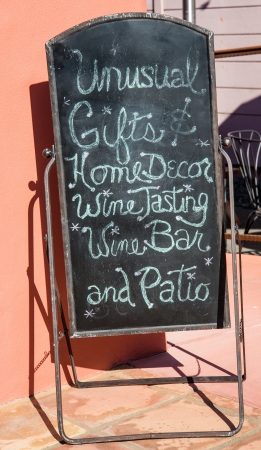 Unusual
Gifts &
Home Decor
Wine Tasting
Wine Bar
and Patio